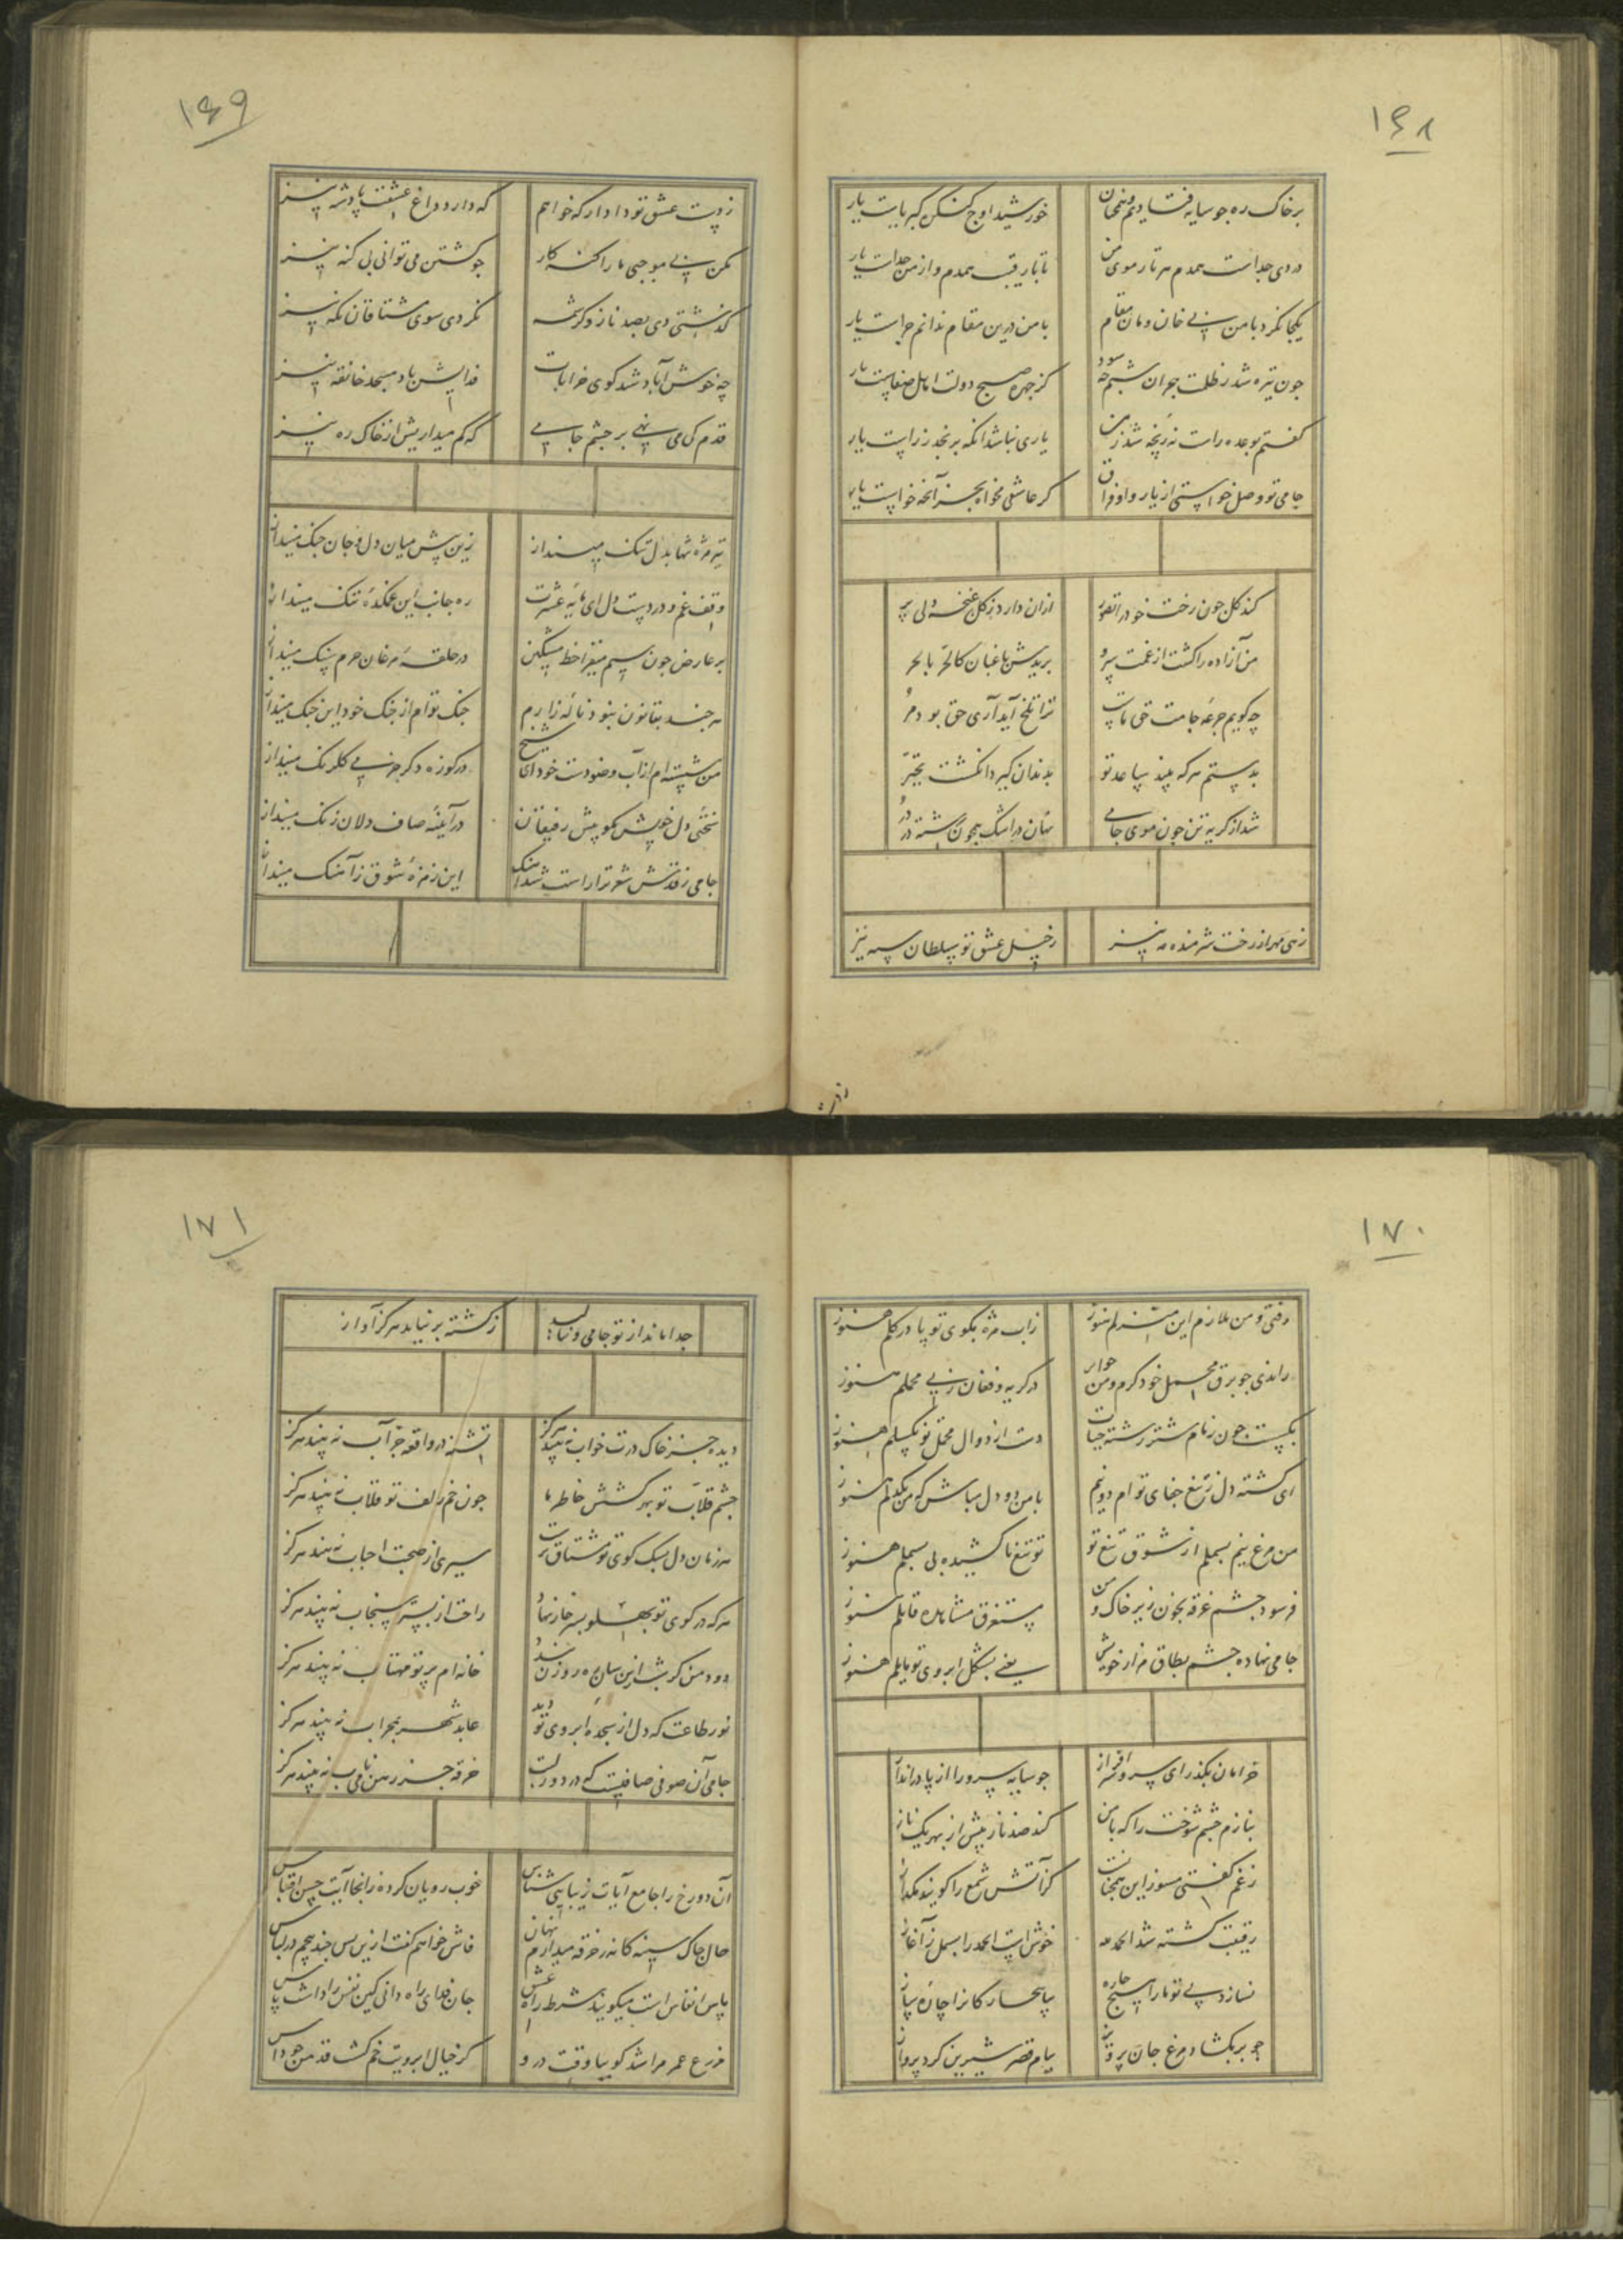 ۱۶۸
برخاک ره جو سایه فتادیم و همچنان
خورشید اوج کنکر کبریاست یار
دردی جداست همدم هر تار موی من
تا با رقیب همدم و از من جداست یار
یکجا نکرد با من بی خان و مان مقام
با من درین مقام ندانم جراست یار
جون تیره شد ز ظلمت هجران شبم جه سود
کز جهره صبح دولت اهل صفاست یار
کفتم بوعده راست نه رنجه شد ز من
یاری نباشد انکه برنجد ز راست یار
جامی تو وصل خواستی از یار و او فراق
کر عاشقی مخواه بجز آنچه خواست یار
کند کل جون رخت خود را تصور
ازان دارد ز کل غنچه دلی پر
من آزاده را کشت از غمت
بریدش باغبان کالحر بالحر
چه کویم جرعه جامت حق ماست
ترا تلخ آید آری حق بود مر
بدستم هر که بیند ساعد تو
بدندان کیرد انکشت تحیر
شد از کریه تن جون موی جامی
نهان در اشک همچون رشته در در
زهی مهر از رخت شرمنده مه نیز
ز خیل عشق تو سلطان سپه نیز
۱۶۹
ز دست عشق تو دادار که خواهم
که دارد داغ عشقت پادشه نیز
مکن بی موجبی ما را کنه کار
جو کشتن می توانی بی کنه نیز
کذشتی دی بصد ناز و کرشمه
نکردی سوی مشتاقان نکه نیز
چه خوش آباد شد کوی خرابات
فدایش باد مسجد خانقه نیز
قدم کی می نهی بر جشم جامی
که کم میداریش از خاک ره نیز
تیر مژه تنها بدل تنک مینداز
زین پس میان دل و جان جنک مینداز
وقف غم و دردست دل ای مایه عشرت
ره جانب این غمکده تنک مینداز
بر عارض جون سیم میفزا خط مشکین
در حلقه مرغان حرم سنک مینداز
هر جند بقانون نبود ناله زارم
جنک توام از جنک خود این جنک مینداز
من شسته‌ام از آب وضو دست خود ای شیخ
در کوزه دکر جز می کلرنک مینداز
سختی دل خویش مکو پیش رفیقان
در آینه صاف دلان زنک مینداز
جامی ز قدش شعر ترا راست شد آهنک
این زمزمه شوق ز آهنک مینداز
۱۷۰
رفتی و من ملازم این منزلم هنوز
ز آب مژه بکوی تو پا در کلم هنوز
راندی جو برق محمل خود کرم و من جو ابر
در کریه و فغان ز پی محملم هنوز
بکسست جون زمام شتر رشته حیات
دست از دوال محمل تو نکسلم هنوز
ای کشته دل ز تیغ جفای توام دو نیم
با من دو دل مباش که من یکدلم هنوز
من مرغ نیم بسملم از شوق تیغ تو
تو تیغ نا کشیده پی بسملم هنوز
فرسود جشم غرقه بخون زیر خاک و من
مستغرق مشاهده قاتلم هنوز
جامی نهاده جشم بطاق مزار خویش
یعنی بشکل ابروی تو مایلم هنوز
خرامان بکذر ای سرو سرافراز
جو سایه سرو را از پا در انداز
بنازم جشم شوخت را که با من
کند صد ناز بیش از بهر یک ناز
ز غم کفتی مسوز این همچنانست
کز آتش شمع را کویند مکداز
رقیبت کشته شد الحمد لله
خوش است الحمد را بسمل ز آغاز
نسازد بی تو ما را هیچ چاره
بیا بیچارکانرا چاره ساز
جو پر بکشاد مرغ جان پرویز
ببام قصر شیرین کرد پرواز
۱۷۱
جدا ماند از تو جامی و ننالید
ز کشته بر نیاید هرکز آواز
دیده جز خاک درت خواب نه بیند هرکز
تشنه در واقعه جز آب نه بیند هرکز
جشم قلاب تو بهر کشش خاطر ما
جون خم زلف تو قلاب نه بیند هرکز
هر زمان دل بسک کوی تو مشتاق‌ترست
سیری از صحبت احباب نه بیند هرکز
هر که در کوی تو پهلو بسر خار نهاد
راحت از بستر سنجاب نه بیند هرکز
دود من کر شب ازین سان ره روزن بندد
خانه‌ام پرتو مهتاب نه بیند هرکز
نور طاعت که دل از سجده ابروی تو دید
عابد شهر بمحراب نه بیند هرکز
جامی آن صوفی صافیست که در دور لبت
خرقه جز رهن می ناب نه بیند هرکز
آن دو رخ را جامع آیات زیبایی شناس
خوب رویان کرده زانجا آیت حسن اقتباس
حال جاک سینه کانه در خرقه میدارم نهان
فاش خواهم کفت ازین پس جند پیچم در لباس
پاس انفاس است میکویند شرط راه عشق
جان فدای راه دانی کین نفس را داشت پاس
مزرع عمر مرا شد کوییا وقت درو
کز خیال ابرویت خم کشت قد من جو داس